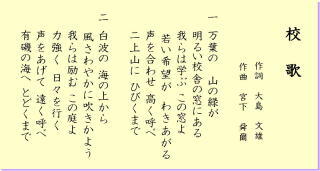 校歌
作詞 大島 文雄
作曲 宮下 舜爾
一 万葉の 山の緑が
明るい校舎の窓にある
我らは学ぶ この窓よ
若い希望が わきあがる
声を合わせ 高く呼べ
二上山に ひびくまで
二 白波の 海の上から
風さわやかに吹きかよう
我らは励む この庭よ
力強く 日々を行く
声をあげて 遠く呼べ
有磯の海へ とどくまで